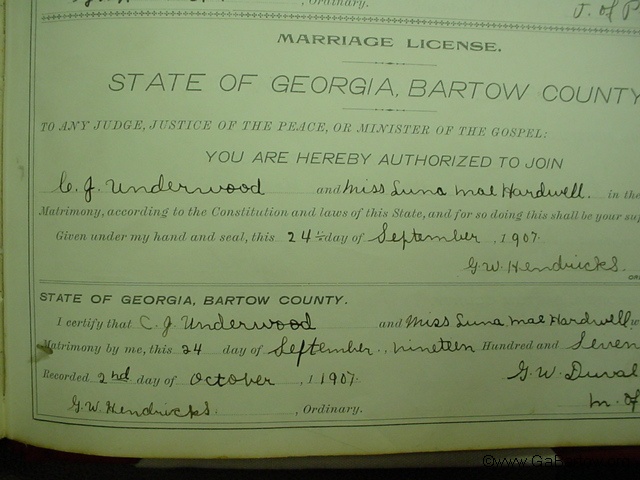 , Ordinary.
J. of P
MARRIAGE LICENSE.
STATE OF GEORGIA, BARTOW COUNTY
TO ANY JUDGE, JUSTICE OF THE PEACE, OR MINISTER OF THE GOSPEL:
YOU ARE HEREBY AUTHORIZED TO JOIN
C. J. Underwood and Miss Luna Mae Hardwell. in the
Matrimony, according to the Constitution and laws of this State, and for so doing this shall be your suf
Given under my hand and seal, this 24 day of September, 1907.
G. W. Hendricks.
STATE OF GEORGIA, BARTOW COUNTY.
I certify that C. J. Underwood and Miss Luna Mae Hardwell w
Matrimony by me, this 24 day of September., nineteen Hundred and Seven
Recorded 2nd day of October, 1907. G. W. Duval
G. W. Hendricks., Ordinary. M. of